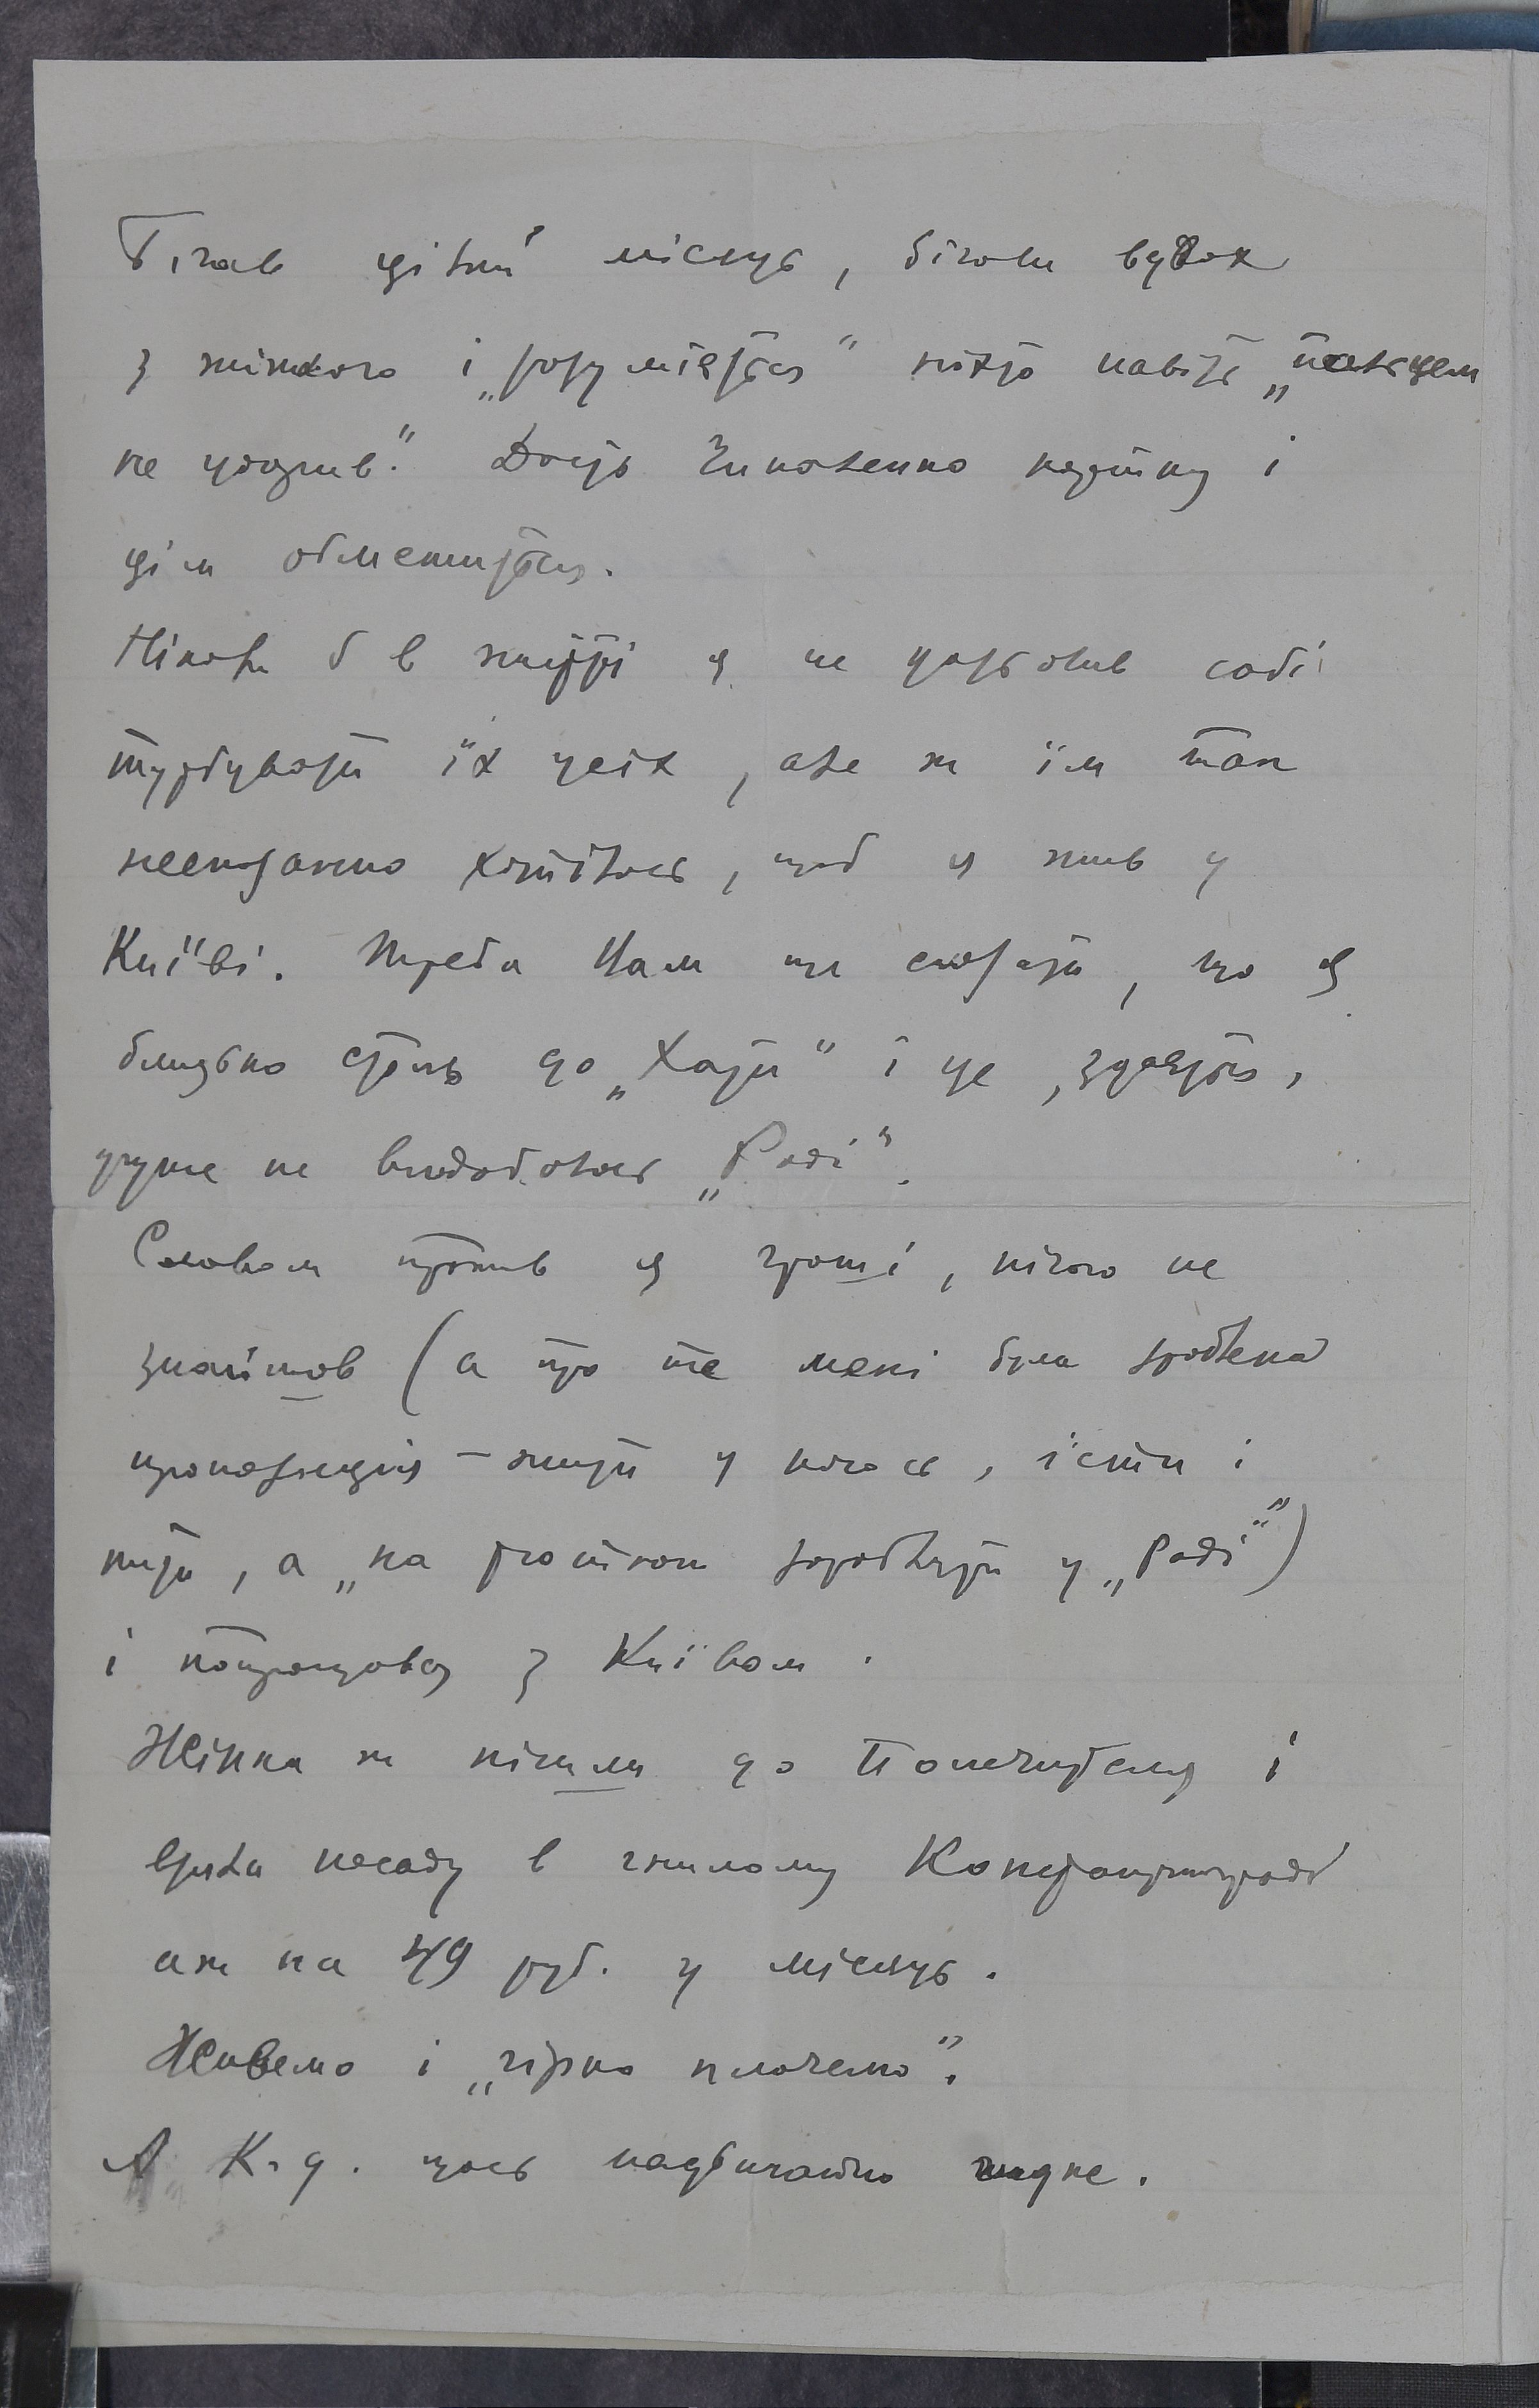 Бігав цілий місяць, бігали вдвох
з жінкою і „розуміється" ніхто навіть „пальцем
не ударив". Дасть Чикаленко картку і
цім обмежиться.
Ніколи б в життрі я не дозволив собі
турбувати їх усіх, але ж їм так
несказанно хотілось, щоб я жив у
Київі. Треба Вам ще сказати, що я
близько стояв до „Хати" і це, здається,
дуже не вподобалось „Раді".
Словом прожив я гроші, нічого не
знайшов (а про те мені була зроблена
пропозиція — жити у когось, їсти і
пити, а „на розткош заробляти у „Раді"")
і попрощався з Київом.
Жінка ж пішла до Попечителя і
взяла посаду в гнилому Констянтинграді
аж на 49 руб. у місяць.
Живемо і „гірко плачемо".
А К-д. щось надзвичайно гидке.